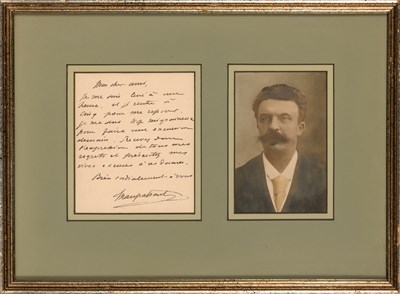 Mon cher ami,
Je me suis levé à une
heure, et je rentre à
cinq pour me reposer
Je me sens trop migraineux
pour faire une excursion
demain. Recevez donc
l'expression de tous mes
regrets et présentez mes
vives excuses à
Bien cordialement à vous
Maupassant